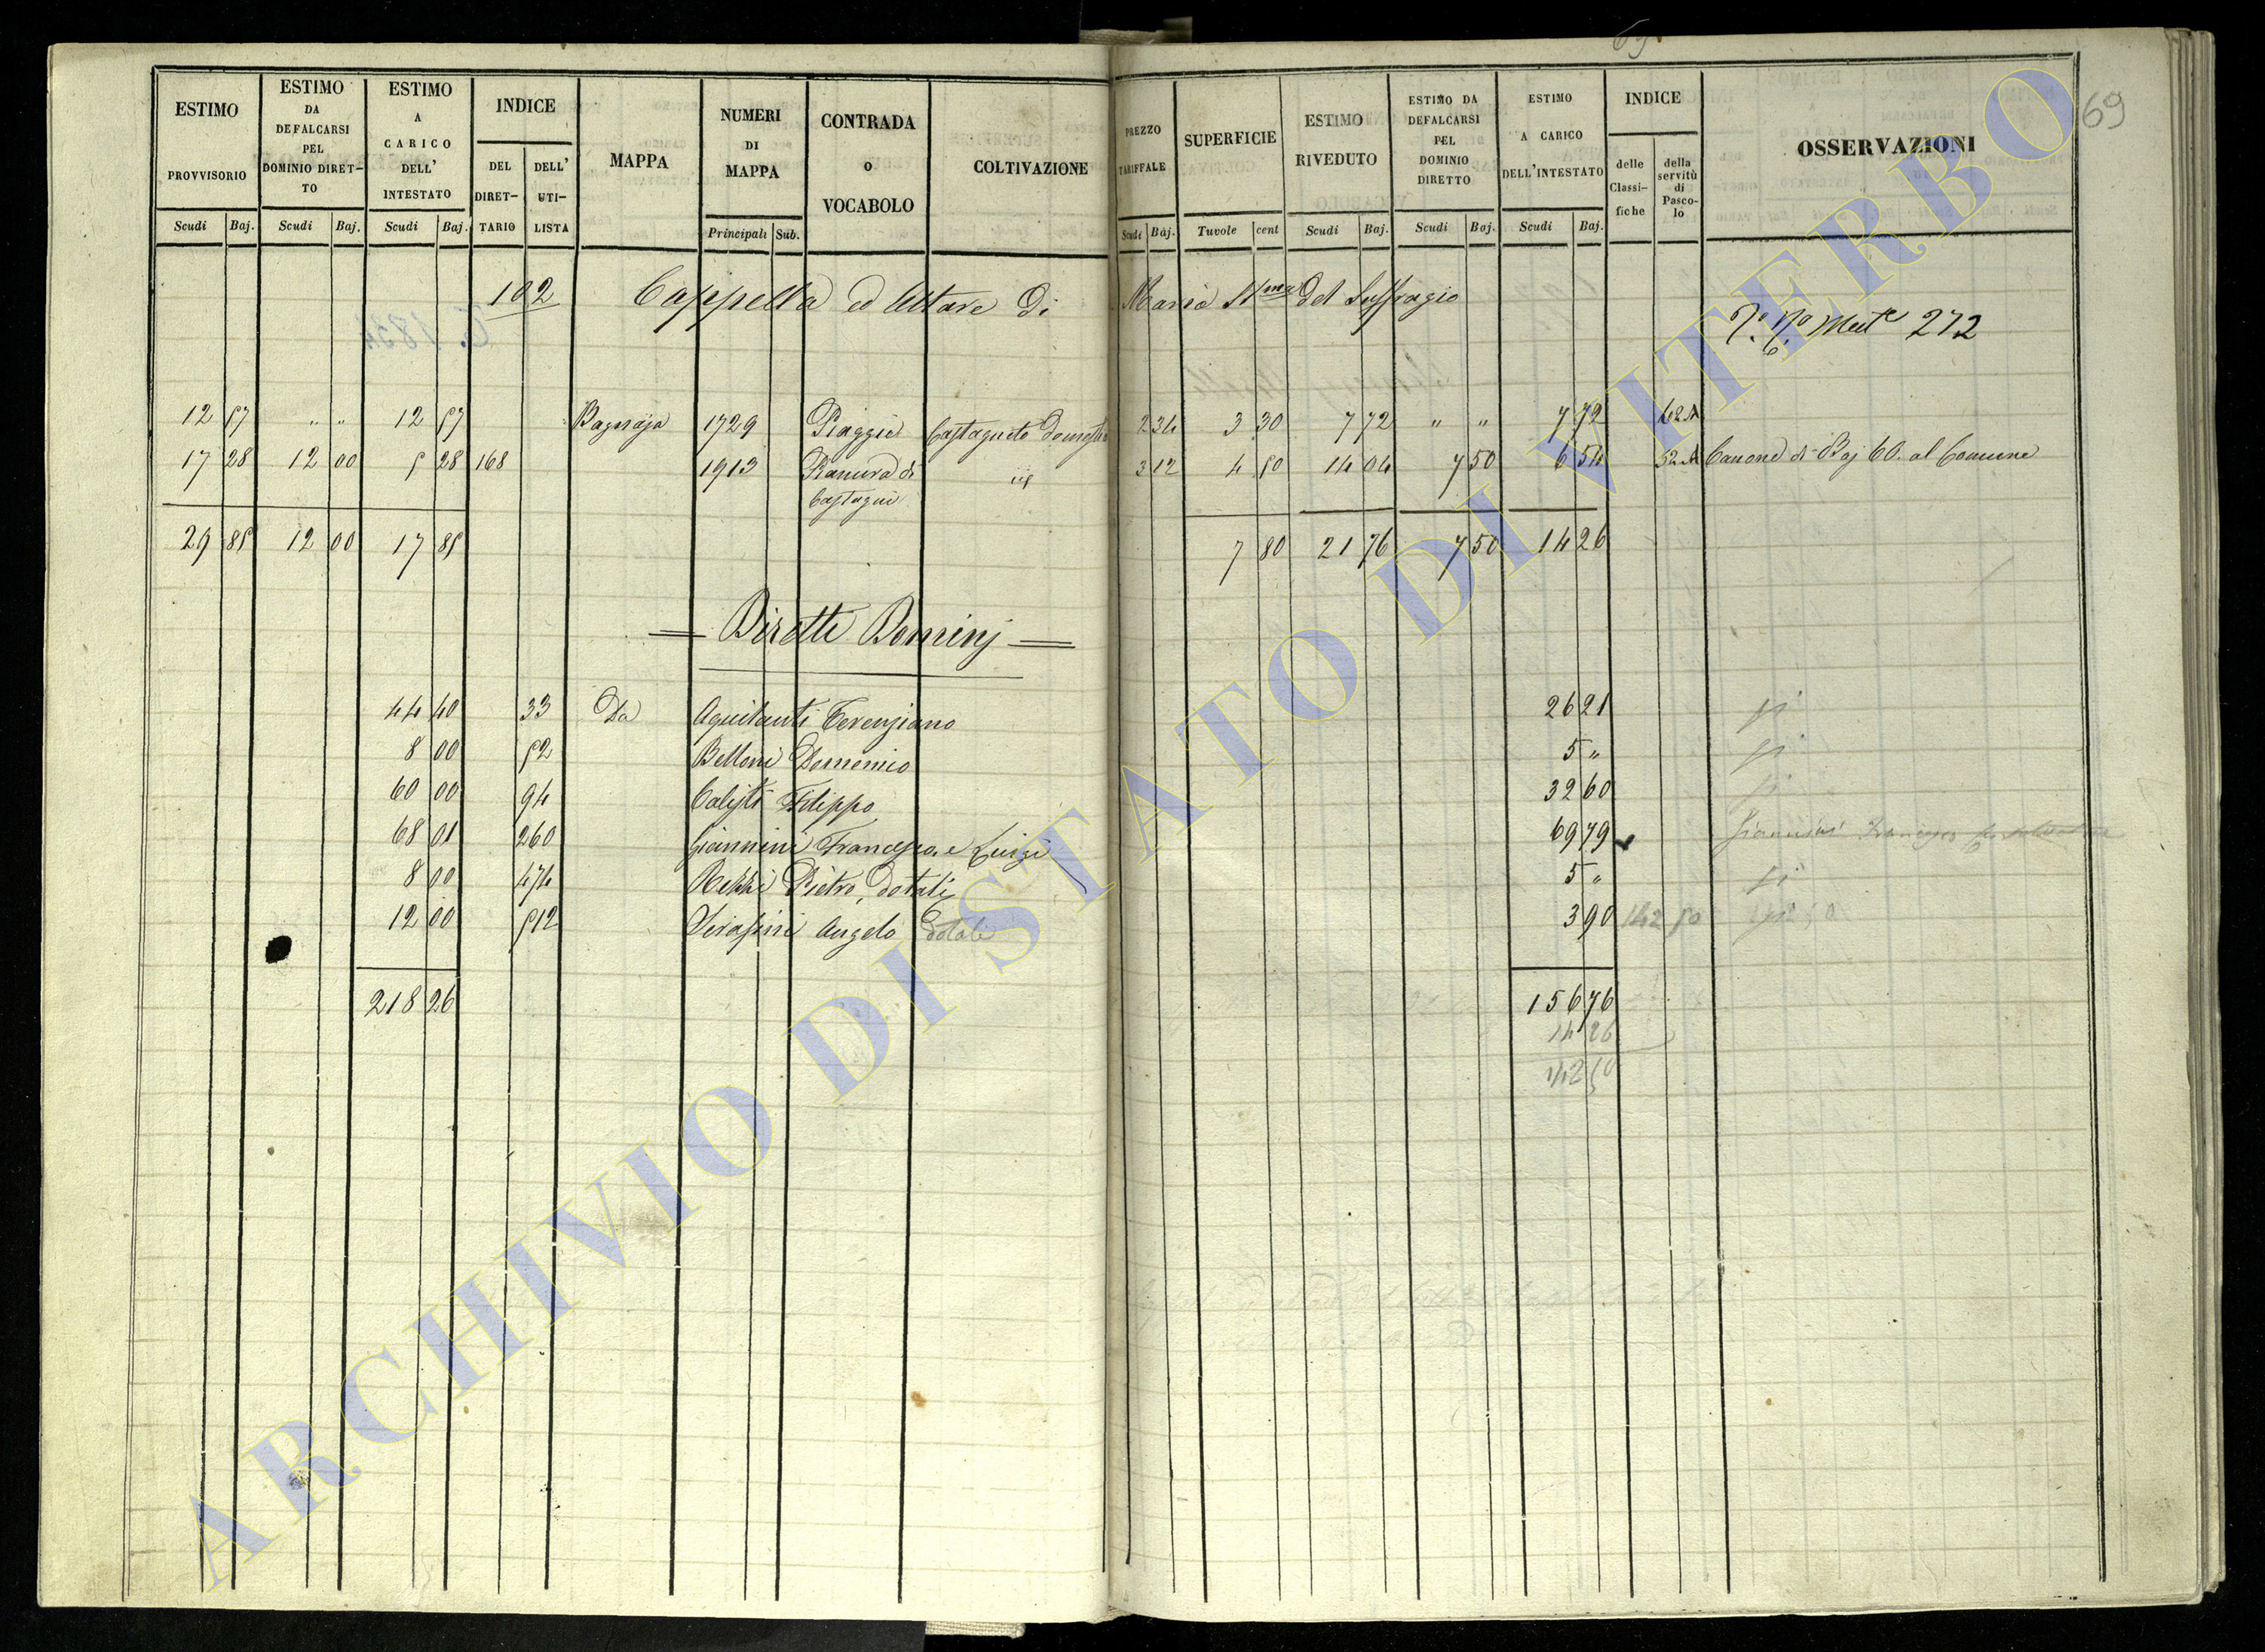 69
69
ESTIMO PROVVISORIO
ESTIMO DA DEFALCARSI PEL DOMINIO DIRETTO
ESTIMO A CARICO DELL' INTESTATO
INDICE
DEL DIRETTARIO
DELL' UTILISTA
MAPPA
NUMERI DI MAPPA
CONTRADA o VOCABOLO
COLTIVAZIONE
PREZZO TARIFFALE
SUPERFICIE
ESTIMO RIVEDUTO
ESTIMO DA DEFALCARSI PEL DOMINIO DIRETTO
ESTIMO A CARICO DELL'INTESTATO
INDICE
delle Classifiche
della servitù di Pascolo
OSSERVAZIONI
Scudi Baj. Scudi Baj. Scudi Baj. Principali Sub. Scudi Baj. Tavole cent Scudi Baj. Scudi Baj. Scudi Baj.
102 Cappella ed Altare di Maria SSma del Suffragio
272
12 57 " " 12 57 Bagnaja 1729 Piaggie Castagneto domestico 2 34 3 30 7 72 " " 7 72 42 A
17 28 12 00 5 28 168 1913 Castagni 3 12 4 50 14 04 7 50 6 54 52 A Canone di Baj 60. al Comune
29 85 12 00 17 85 7 80 21 76 7 50 14 26
= Diretti Dominj =
44 40 33 Da Aquilanti Terenziano 26 21
8 00 52 Belloni Domenico 5 "
60 00 94 Calisti Filippo 32 60
68 01 260 Giannini Francesco, e Luigi 69 79 Giannini Francesco
8 00 474 Pietro, dotali 5 "
12 00 512 Serafini Angelo dotali 3 90 142 50
218 26 156 76
14 26
142 50
ARCHIVIO DI STATO DI VITERBO